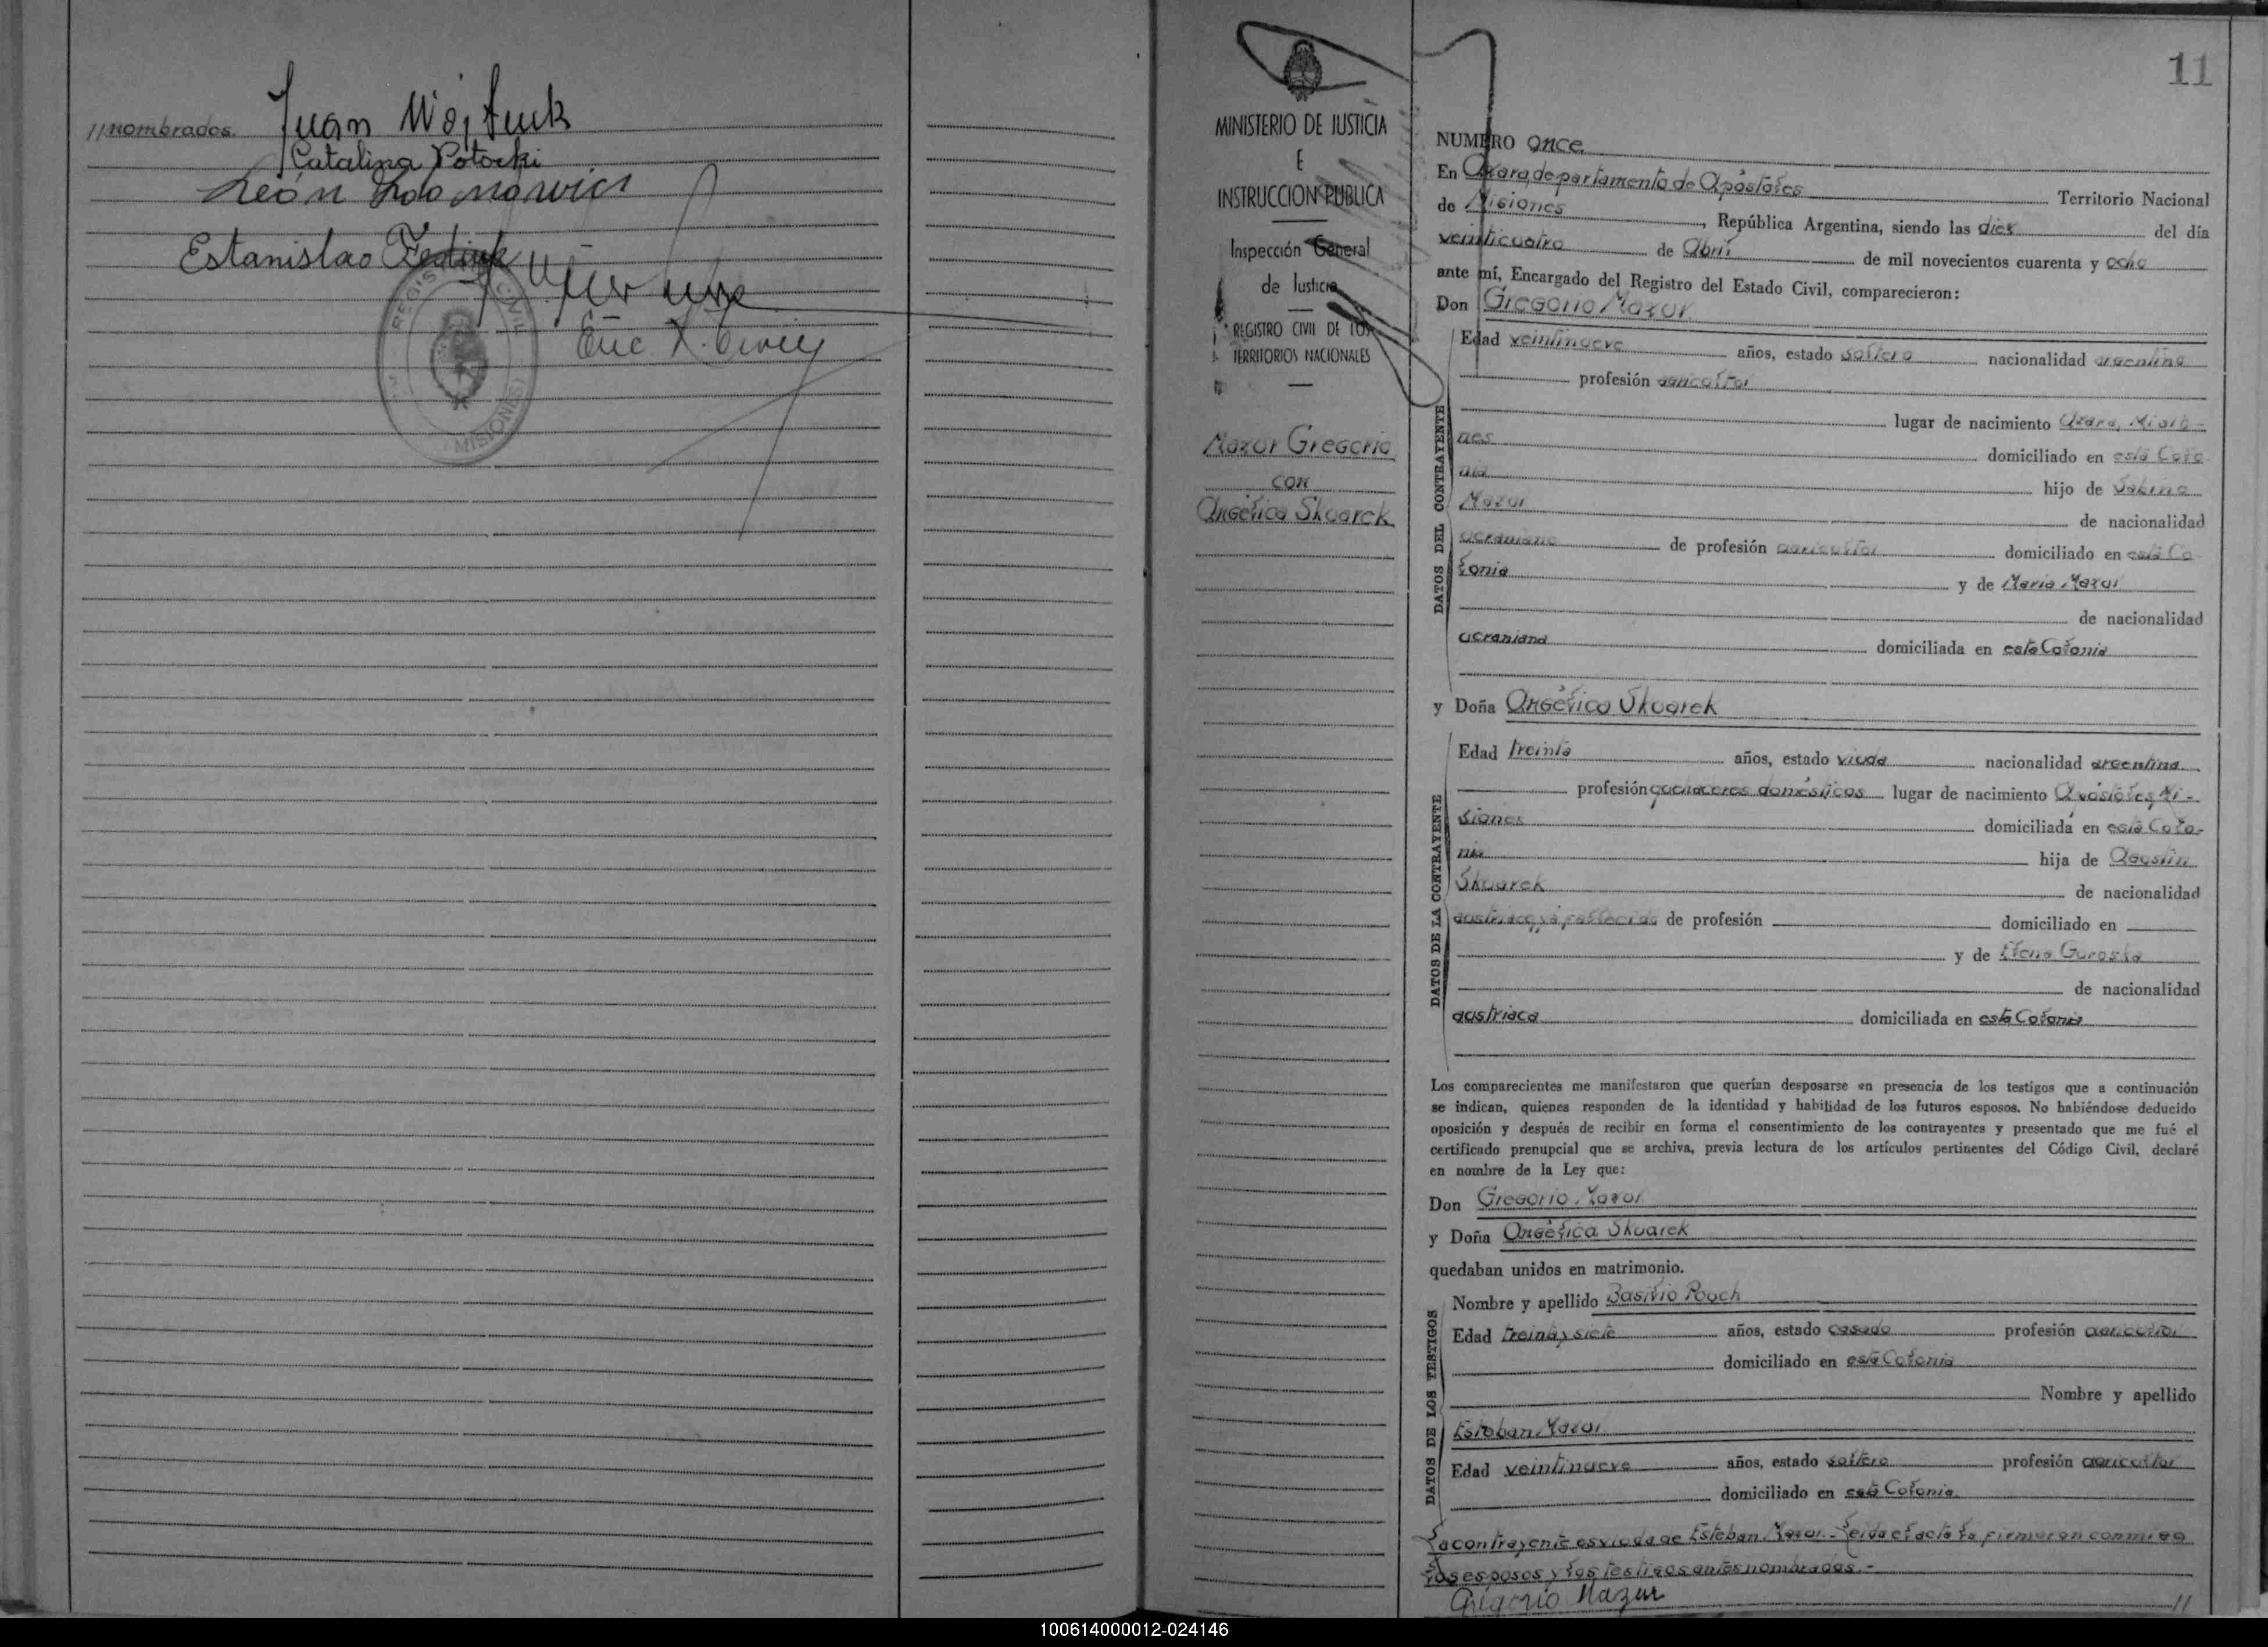 //nombrados. Juan Wojtiuk
Catalina Potocki
León
Estanislao Fediuk
REGISTRO CIVIL
(MISIONES)
MINISTERIO DE JUSTICIA
E
INSTRUCCION PUBLICA
Inspección General
de Justicia
REGISTRO CIVIL DE LOS
TERRITORIOS NACIONALES
Mazur Gregorio
con
Angélica Skuarek
11
NUMERO once
En Azara, departamento de Apóstoles Territorio Nacional
de Misiones, República Argentina, siendo las diez del día
veinticuatro de Abril de mil novecientos cuarenta y ocho
ante mí, Encargado del Registro del Estado Civil, comparecieron:
Don Gregorio Mazur
DATOS DEL CONTRAYENTE
Edad veintinueve años, estado soltero nacionalidad argentina
profesión agricultor
lugar de nacimiento Azara, Misio-
nes domiciliado en esta Colo-
nia hijo de Sabino
Mazur de nacionalidad
ucraniano de profesión agricultor domiciliado en esta Co-
lonia y de Maria Mazur
de nacionalidad
ucraniana domiciliada en esta Colonia
y Doña Angélica Skuarek
DATOS DE LA CONTRAYENTE
Edad treinta años, estado viuda nacionalidad argentina
profesión quehaceres domésticos lugar de nacimiento Apóstoles, Mi-
siones domiciliada en esta Colo-
nia hija de Agustin
Skuarek de nacionalidad
austriaco, ya fallecido de profesión domiciliado en
y de Elena Guroska
de nacionalidad
austriaca domiciliada en esta Colonia
Los comparecientes me manifestaron que querían desposarse en presencia de los testigos que a continuación
se indican, quienes responden de la identidad y habilidad de los futuros esposos. No habiéndose deducido
oposición y después de recibir en forma el consentimiento de los contrayentes y presentado que me fué el
certificado prenupcial que se archiva, previa lectura de los artículos pertinentes del Código Civil, declaré
en nombre de la Ley que:
Don Gregorio Mazur
y Doña Angélica Skuarek
quedaban unidos en matrimonio.
DATOS DE LOS TESTIGOS
Nombre y apellido Basilio Pouch
Edad treinta y siete años, estado casado profesión agricultor
domiciliado en esta Colonia
Nombre y apellido
Esteban Mazur
Edad veintinueve años, estado soltero profesión agricultor
domiciliado en esta Colonia.
La contrayente es viuda de Esteban Mazur.- Leida el acta la firmaron conmigo
los esposos y los testigos antes nombrados.-
Grigorio Mazur //
100614000012-024146